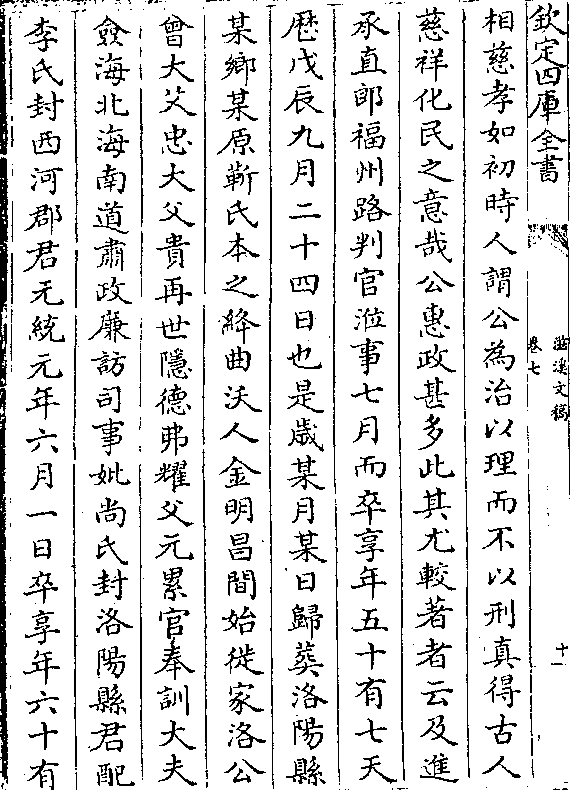 欽定四庫全書
滋溪文稿
卷七
十一
相慈孝如初時人謂公為治以理而不以刑真得古人
慈祥化民之意哉公惠政甚多此其尤較著者云及進
承直郎福州路判官涖事七月而卒享年五十有七天
厯戊辰九月二十四日也是歳某月某日歸葬洛陽縣
某鄉某原靳氏本之絳曲沃人金明昌間始徙家洛公
曾大父忠大父貴再世隱德弗耀父元累官奉訓大夫
僉海北海南道肅政廉訪司事妣尚氏封洛陽縣君配
李氏封西河郡君元統元年六月一日卒享年六十有